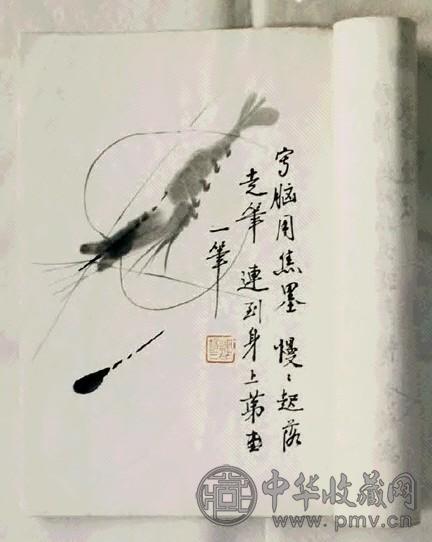 写脑用焦墨 慢々起落
走筆 連到身上第
一筆
中华收藏网
www.pmv.cn